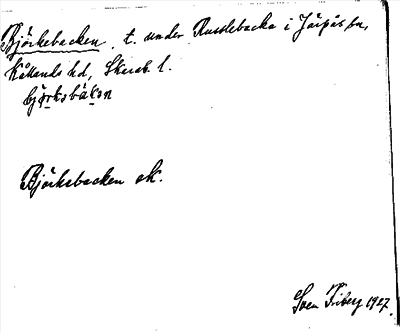 Björkebacken, t. under Russlebacka i Järpås sn,
Kållands hd, Skarab. l.
bjö̱rksbàkan
Björkebacken ek.
Sven Friberg 1927.